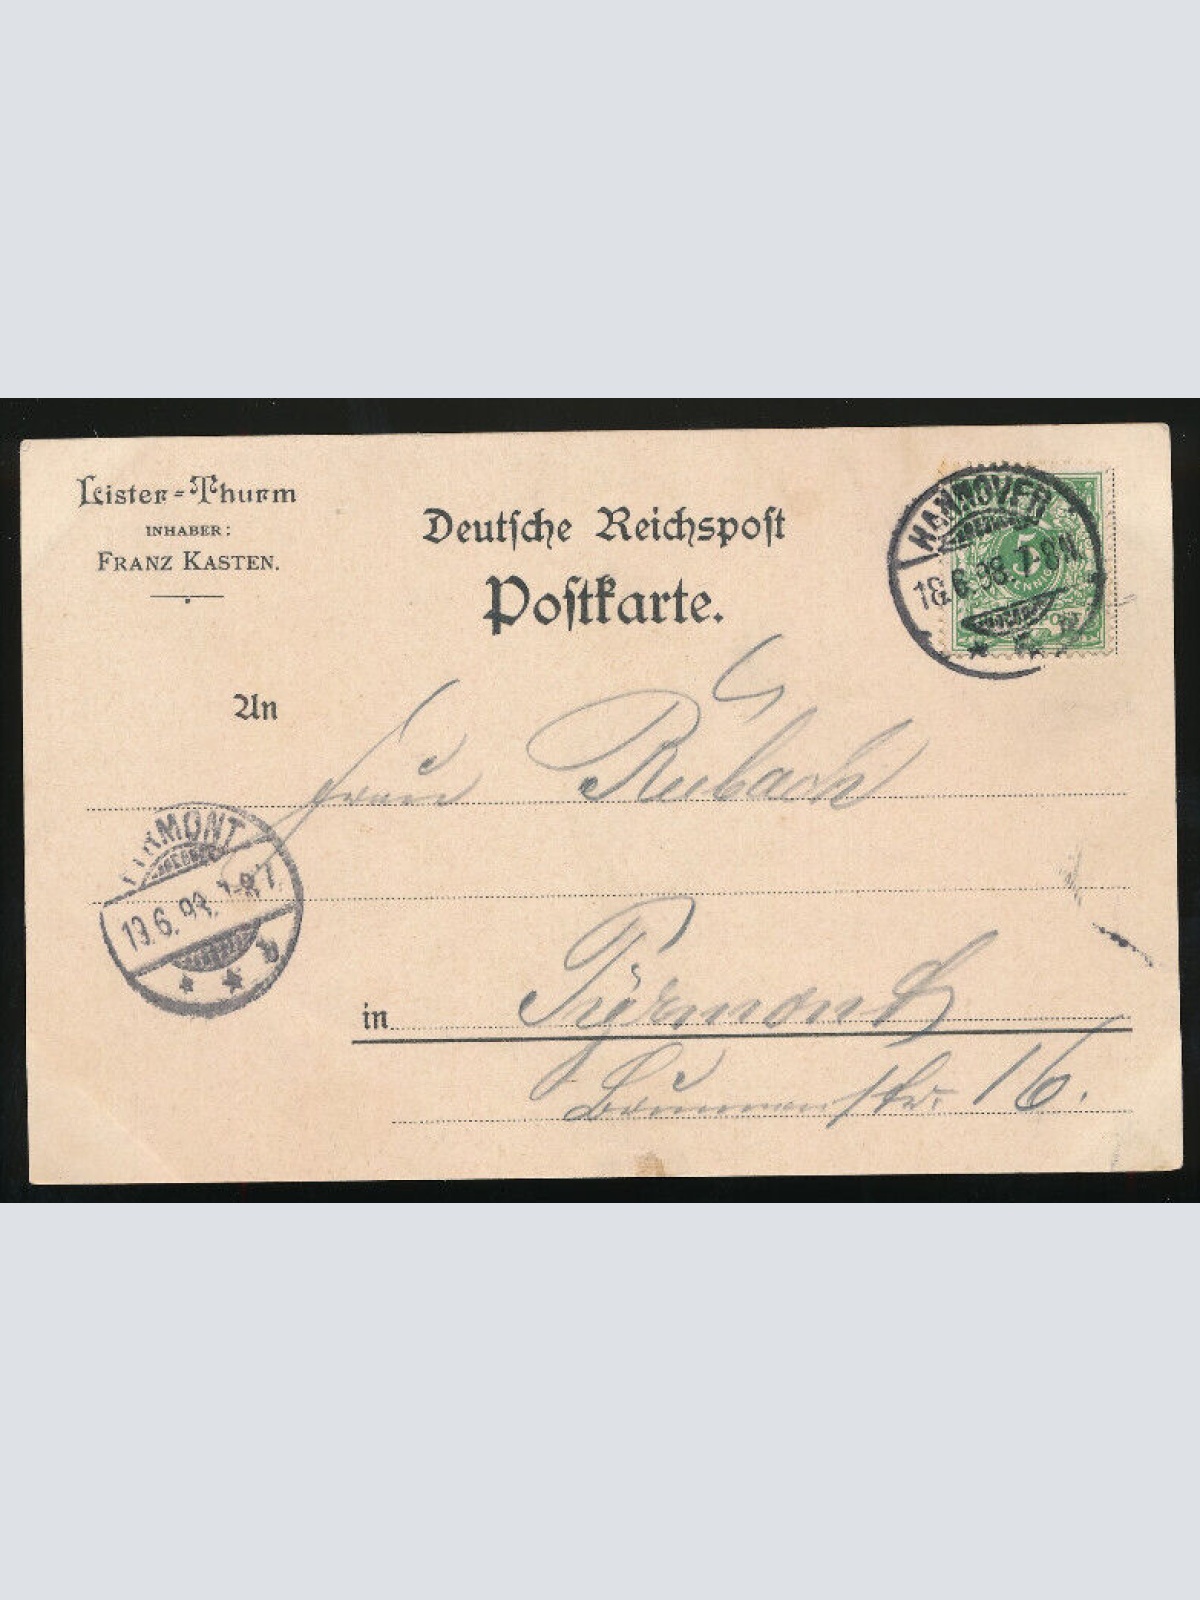 Lister-Thurm
INHABER:
FRANZ KASTEN.
Deutsche Reichspost
Postkarte.
HANNOVER
18.6.98.7-8N.
5
An
Frau Rubach
PYRMONT
19.6.98. 7-8V.
b
in Pyrmont
Brunnenstr. 16.